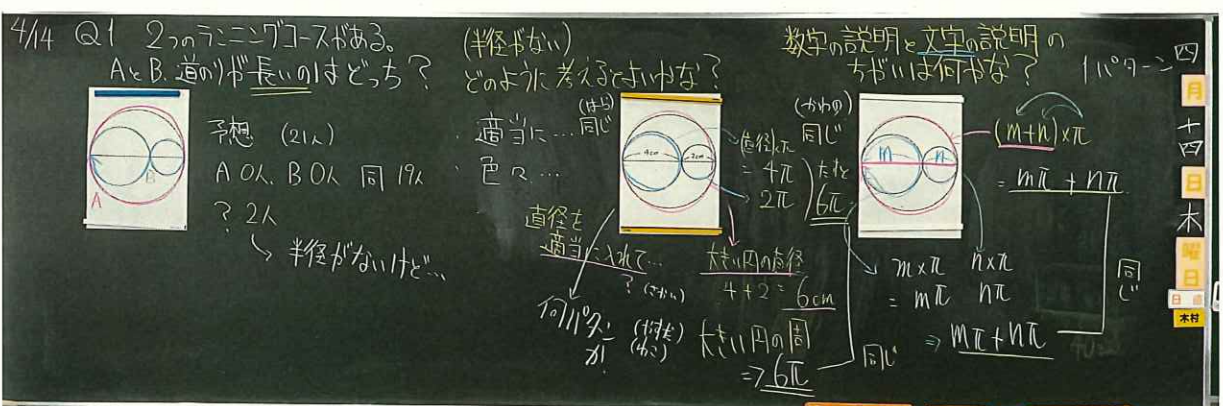 4/14 Q1 2つのランニングコースがある。
AとB、道のりが長いのはどっち？
A
B
予想 (21人)
A 0人、B 0人 同 19人
? 2人
↳ 半径がないけど…
(半径がない)
どのように考えるとよいかな？
・適当に…
・色々…
直径を
適当に入れて…
?
何パターン
か!
(はら)
同じ
4cm
2cm
(直径)×π
= 4π
2π
たすと
6π
大きい円の直径
4+2=6cm
大きい円の周
⇒ 6π
同じ
数字の説明と文字の説明の
ちがいは何かな？
1パターン
(かわの)
同じ
m
n
(m+n)×π
= mπ + nπ
m×π n×π
= mπ nπ
⇒ mπ+nπ
同じ
四
月
十四
日
木
曜
日
日直
木村